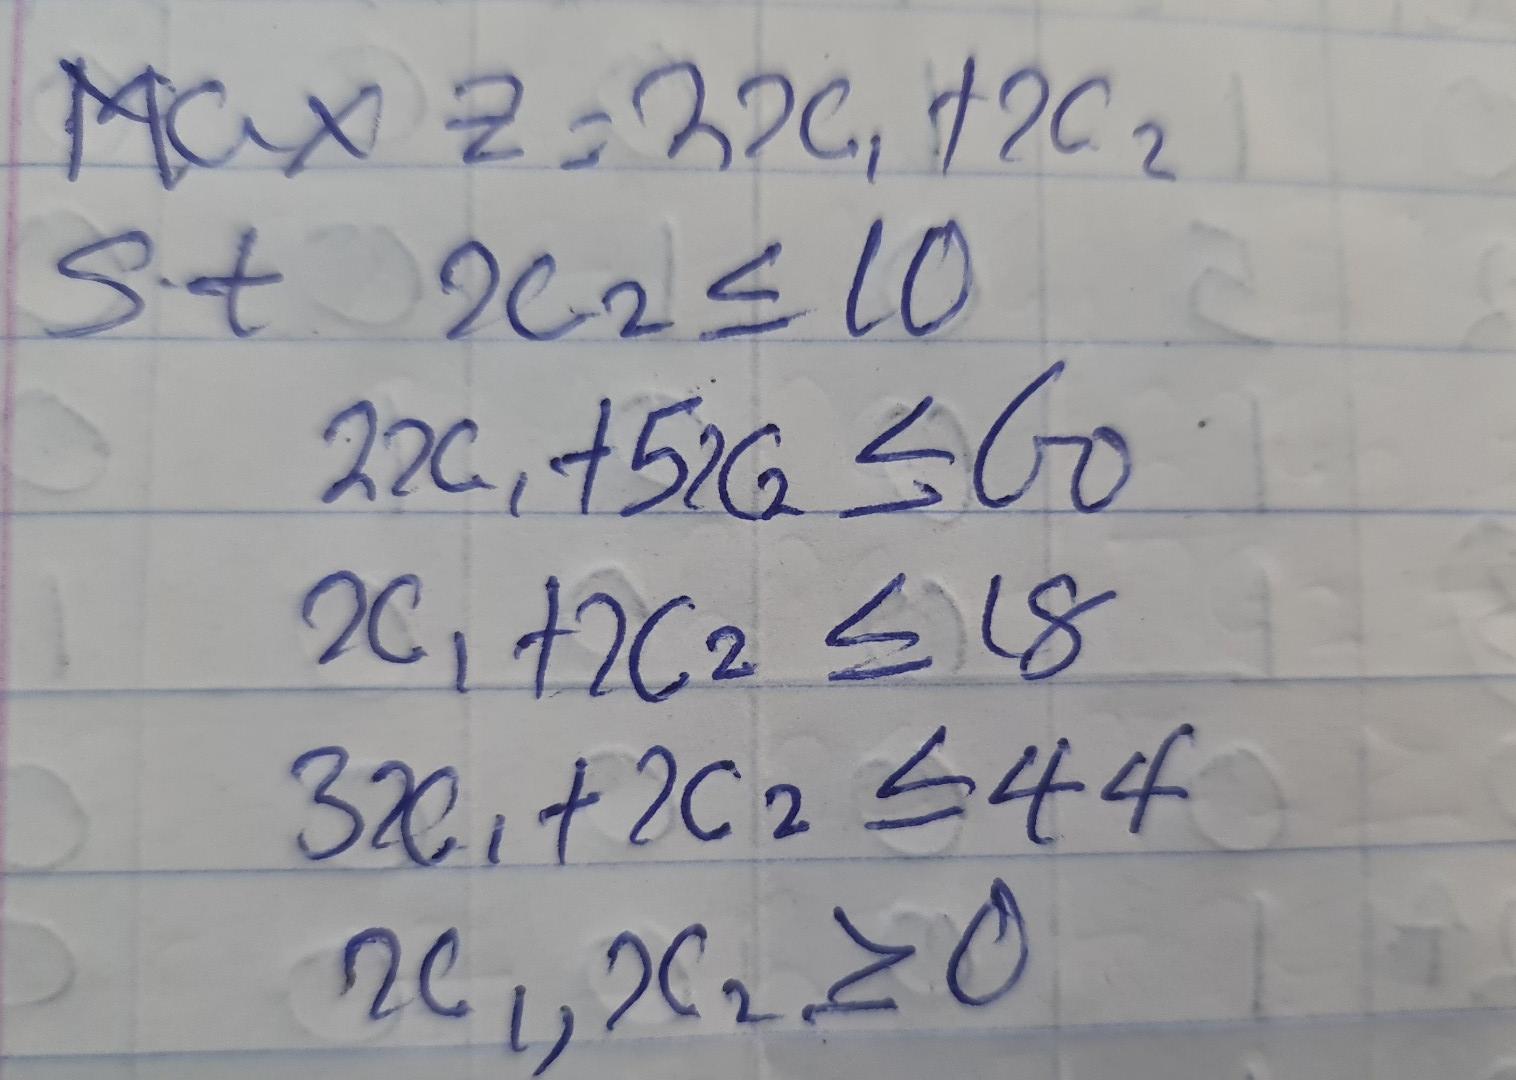 Max z = 2x₁ + x₂
S.t x₂ ≤ 10
2x₁ + 5x₂ ≤ 60
x₁ + x₂ ≤ 18
3x₁ + x₂ ≤ 44
x₁, x₂ ≥ 0